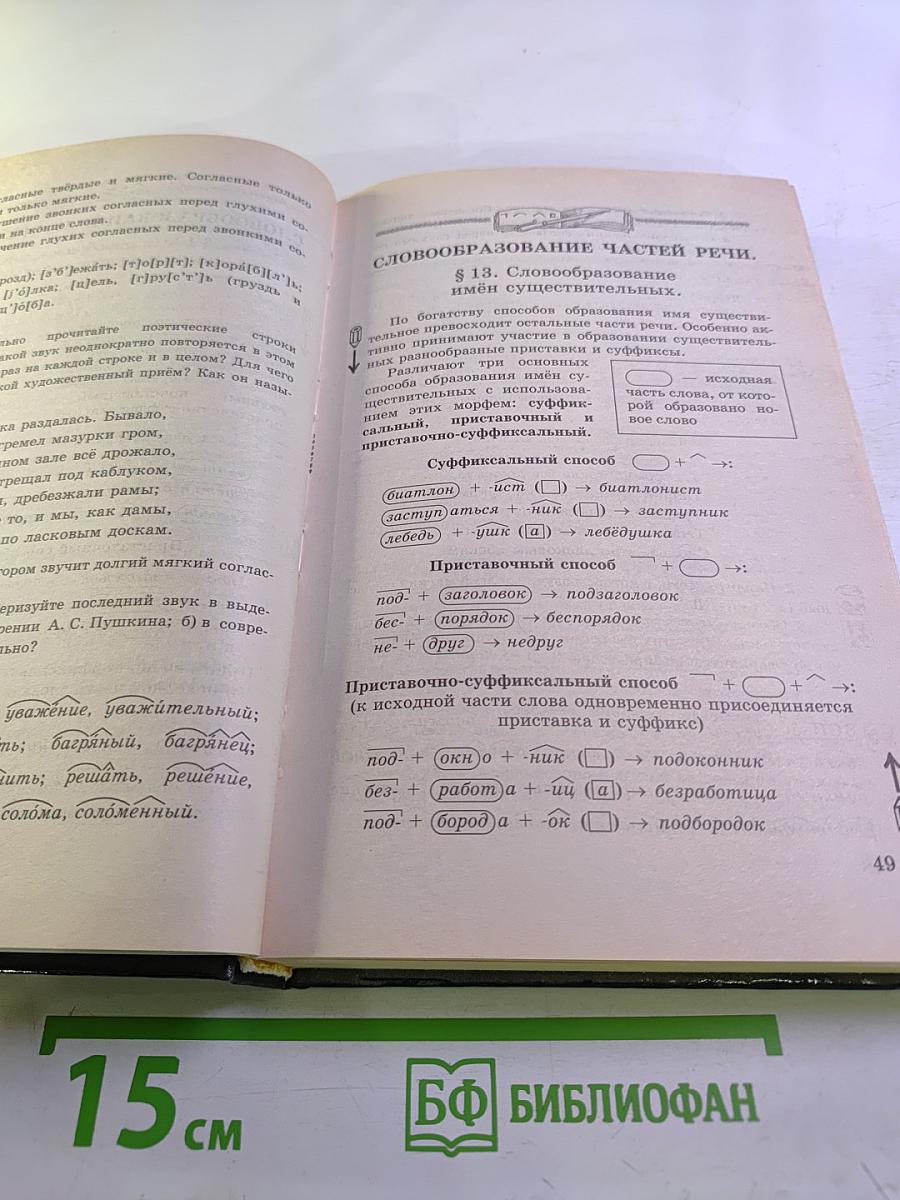 гласные твёрдые и мягкие. Согласные только
и только мягкие.
шение звонких согласных перед глухими со-
и на конце слова.
чение глухих согласных перед звонкими со-
розд); [з’б’]ежа́ть; [т]о[р][т]; [к]ора́[б][л’]ь;
[j’о́]лка; [ц]ель, [г]ру[с’т’]ь (груздь и
ц’]о́[б]а.
льно прочитайте поэтические строки
акой звук неоднократно повторяется в этом
раз на каждой строке и в целом? Для чего
кой художественный приём? Как он назы-
ка раздалась. Бывало,
гремел мазурки гром,
ном зале всё дрожало,
трещал под каблуком,
, дребезжали рамы;
то, и мы, как дамы,
по ласковым доскам.
тором звучит долгий мягкий соглас-
еризуйте последний звук в выде-
рении А. С. Пушкина; б) в совре-
льно?
уваже́ние, уважи́тельный;
ть; багря́ный, багряне́ц;
ить; реша́ть, реше́ние,
соло́ма, соло́менный.
СЛОВООБРАЗОВАНИЕ ЧАСТЕЙ РЕЧИ.
§ 13. Словообразование
имён существительных.
По богатству способов образования имя существи-
тельное превосходит остальные части речи. Особенно ак-
тивно принимают участие в образовании существитель-
ных разнообразные приставки и суффиксы.
Различают три основных
способа образования имён су-
ществительных с использова-
нием этих морфем: суффик-
сальный, приставочный и
приставочно-суффиксальный.
— исходная
часть слова, от кото-
рой образовано но-
вое слово
Суффиксальный способ + →:
биатлон + -ист ( ) → биатлонист
заступаться + -ник ( ) → заступник
лебедь + -ушк (а) → лебёдушка
Приставочный способ + →:
под- + заголовок → подзаголовок
бес- + порядок → беспорядок
не- + друг → недруг
Приставочно-суффиксальный способ + + →:
(к исходной части слова одновременно присоединяется
приставка и суффикс)
под- + окно + -ник ( ) → подоконник
без- + работа + -иц (а) → безработица
под- + борода + -ок ( ) → подбородок
49
15 см
БФ БИБЛИОФАН